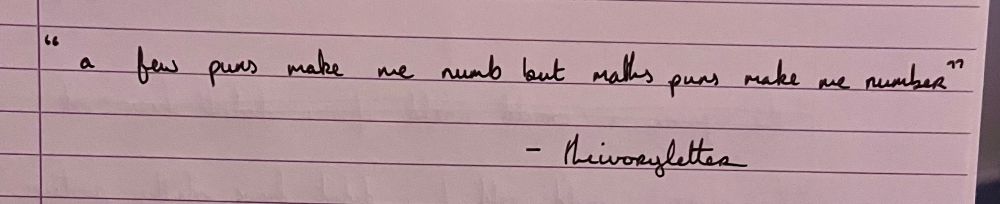 “a few puns make me numb but maths puns make me number”
- theivoryletter